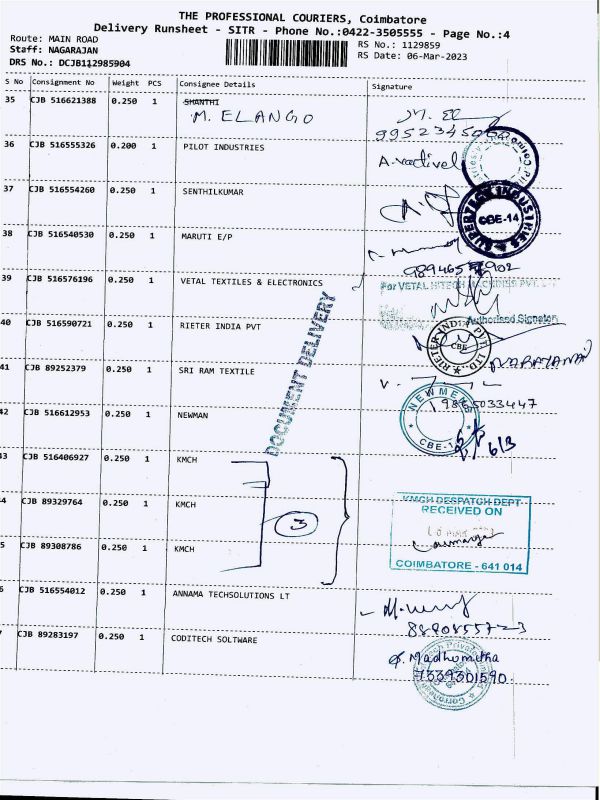 THE PROFESSIONAL COURIERS, Coimbatore
Delivery Runsheet - SITR - Phone No.:0422-3505555 - Page No.:4
Route: MAIN ROAD
RS No.: 1129859
Staff: NAGARAJAN
RS Date: 06-Mar-2023
DRS No.: DCJB112985904
S No Consignment No Weight PCS Consignee Details Signature
35 CJB 516621388 0.250 1 SHANTHI
M. ELANGO
36 CJB 516555326 0.200 1 PILOT INDUSTRIES A.vadivel
37 CJB 516554260 0.250 1 SENTHILKUMAR
SUPERTECH INDUSTRIES
CBE-14
38 CJB 516540530 0.250 1 MARUTI E/P
39 CJB 516576196 0.250 1 VETAL TEXTILES & ELECTRONICS
For VETAL HITECH MACHINES PVT.
Authorised Signatory
DOCUMENT DELIVERY
40 CJB 516590721 0.250 1 RIETER INDIA PVT
RIETER INDIA PVT. LTD.
CBE
NARAYANAN
41 CJB 89252379 0.250 1 SRI RAM TEXTILE
42 CJB 516612953 0.250 1 NEWMAN
NEWMENS
CBE-14
6/3
43 CJB 516406927 0.250 1 KMCH
44 CJB 89329764 0.250 1 KMCH
3
KMCH DESPATCH DEPT
RECEIVED ON
COIMBATORE - 641 014
5 CJB 89308786 0.250 1 KMCH
6 CJB 516554012 0.250 1 ANNAMA TECHSOLUTIONS LT
7 CJB 89283197 0.250 1 CODITECH SOLTWARE
Madhomitha
7339301590